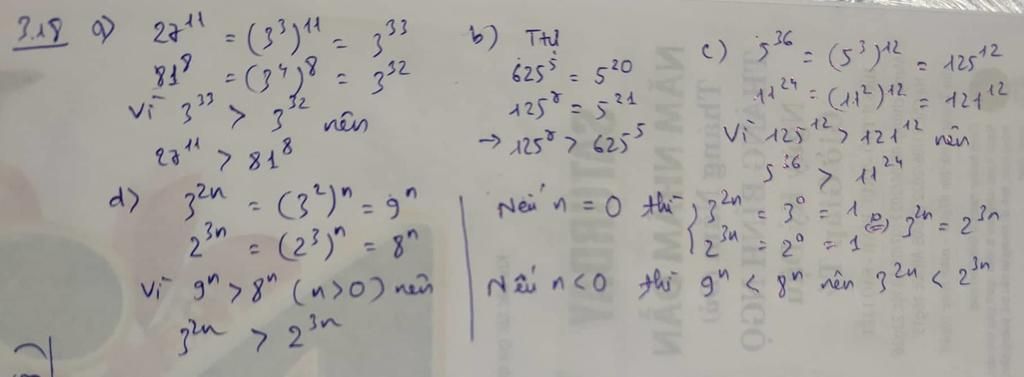 3.18 a) 27¹¹ = (3³)¹¹ = 3³³
81⁸ = (3⁴)⁸ = 3³²
Vì 3³³ > 3³² nên
27¹¹ > 81⁸
b) TTự
625⁵ = 5²⁰
125⁷ = 5²¹
→ 125⁷ > 625⁵
c) 5³⁶ = (5³)¹² = 125¹²
11²⁴ = (11²)¹² = 121¹²
Vì 125¹² > 121¹² nên
5³⁶ > 11²⁴
d) 3²ⁿ = (3²)ⁿ = 9ⁿ
2³ⁿ = (2³)ⁿ = 8ⁿ
Vì 9ⁿ > 8ⁿ (n>0) nên
3²ⁿ > 2³ⁿ
Nếu n = 0 thì { 3²ⁿ = 3⁰ = 1
2³ⁿ = 2⁰ = 1 => 3²ⁿ = 2³ⁿ
Nếu n<0 thì 9ⁿ < 8ⁿ nên 3²ⁿ < 2³ⁿ
NĂM NHÂM DẦN
SATURDAY
THÁNG BÍNH NGỌ